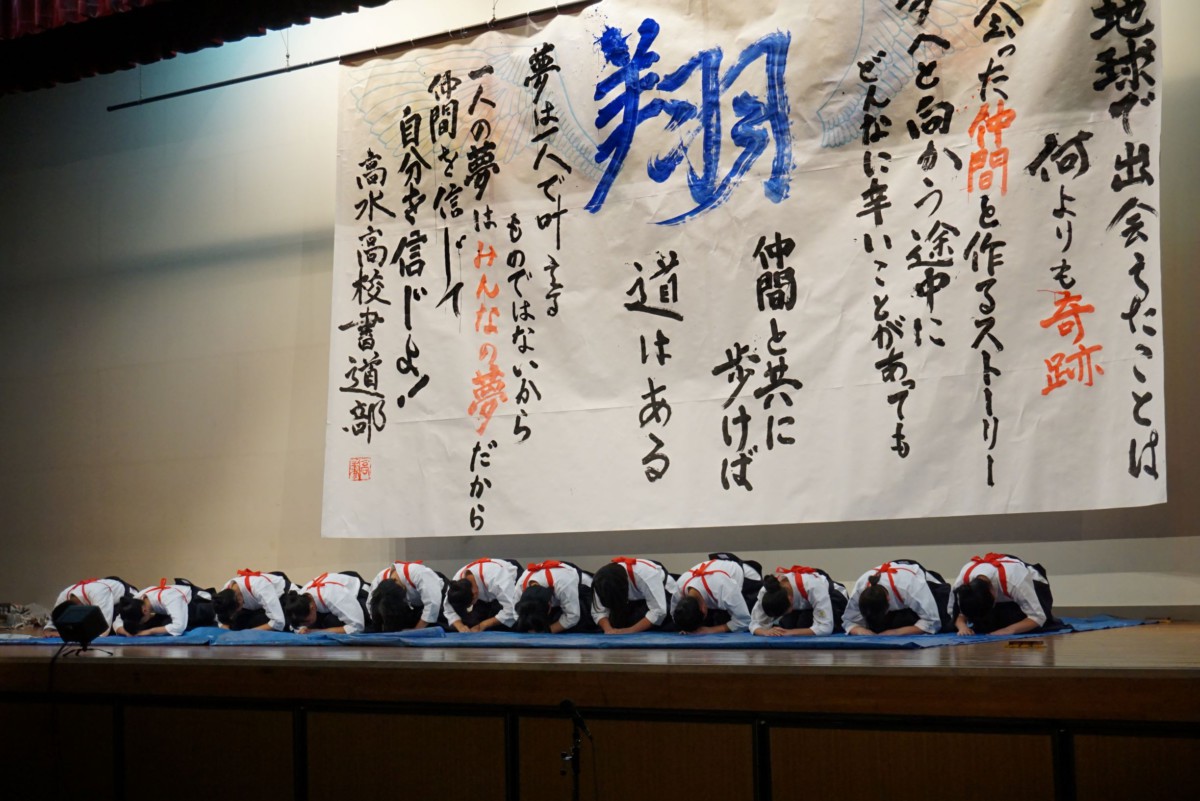 地球で出会えたことは
何よりも奇跡
会った仲間と作るストーリー
へと向かう途中に
どんなに辛いことがあっても
仲間と共に
歩けば
道はある
翔
夢は一人で叶える
ものではないから
一人の夢はみんなの夢だから
仲間を信じて
自分を信じよ!
高水高校書道部